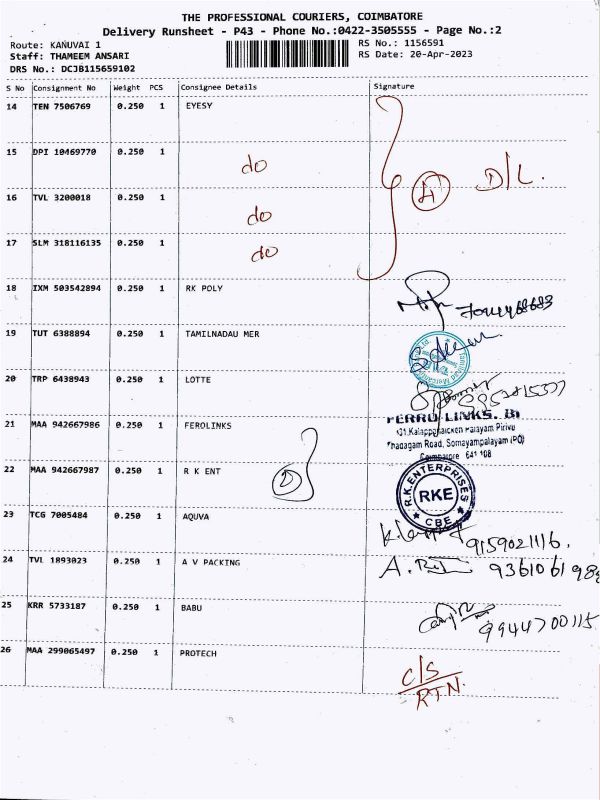 THE PROFESSIONAL COURIERS, COIMBATORE
Delivery Runsheet - P43 - Phone No.:0422-3505555 - Page No.:2
Route: KANUVAI 1 RS No.: 1156591
Staff: THAMEEM ANSARI RS Date: 20-Apr-2023
DRS No.: DCJB115659102
S No Consignment No Weight PCS Consignee Details Signature
14 TEN 7506769 0.250 1 EYESY
15 DPI 10469770 0.250 1 do
D/L.
16 TVL 3200018 0.250 1 do
17 SLM 318116135 0.250 1 do
18 IXM 503542894 0.250 1 RK POLY
19 TUT 6388894 0.250 1 TAMILNADAU MER
20 TRP 6438943 0.250 1 LOTTE
21 MAA 942667986 0.250 1 FEROLINKS
FERRO LINKS.
Thadagam Road, Somayampalayam (PO)
Coimbatore 641 108
22 MAA 942667987 0.250 1 R K ENT
R.K.ENTERPRISES
RKE
CBE
23 TCG 7005484 0.250 1 AQUVA 9159021116.
24 TVL 1893023 0.250 1 A V PACKING
25 KRR 5733187 0.250 1 BABU 9944700115
26 MAA 299065497 0.250 1 PROTECH C/S
RTN.